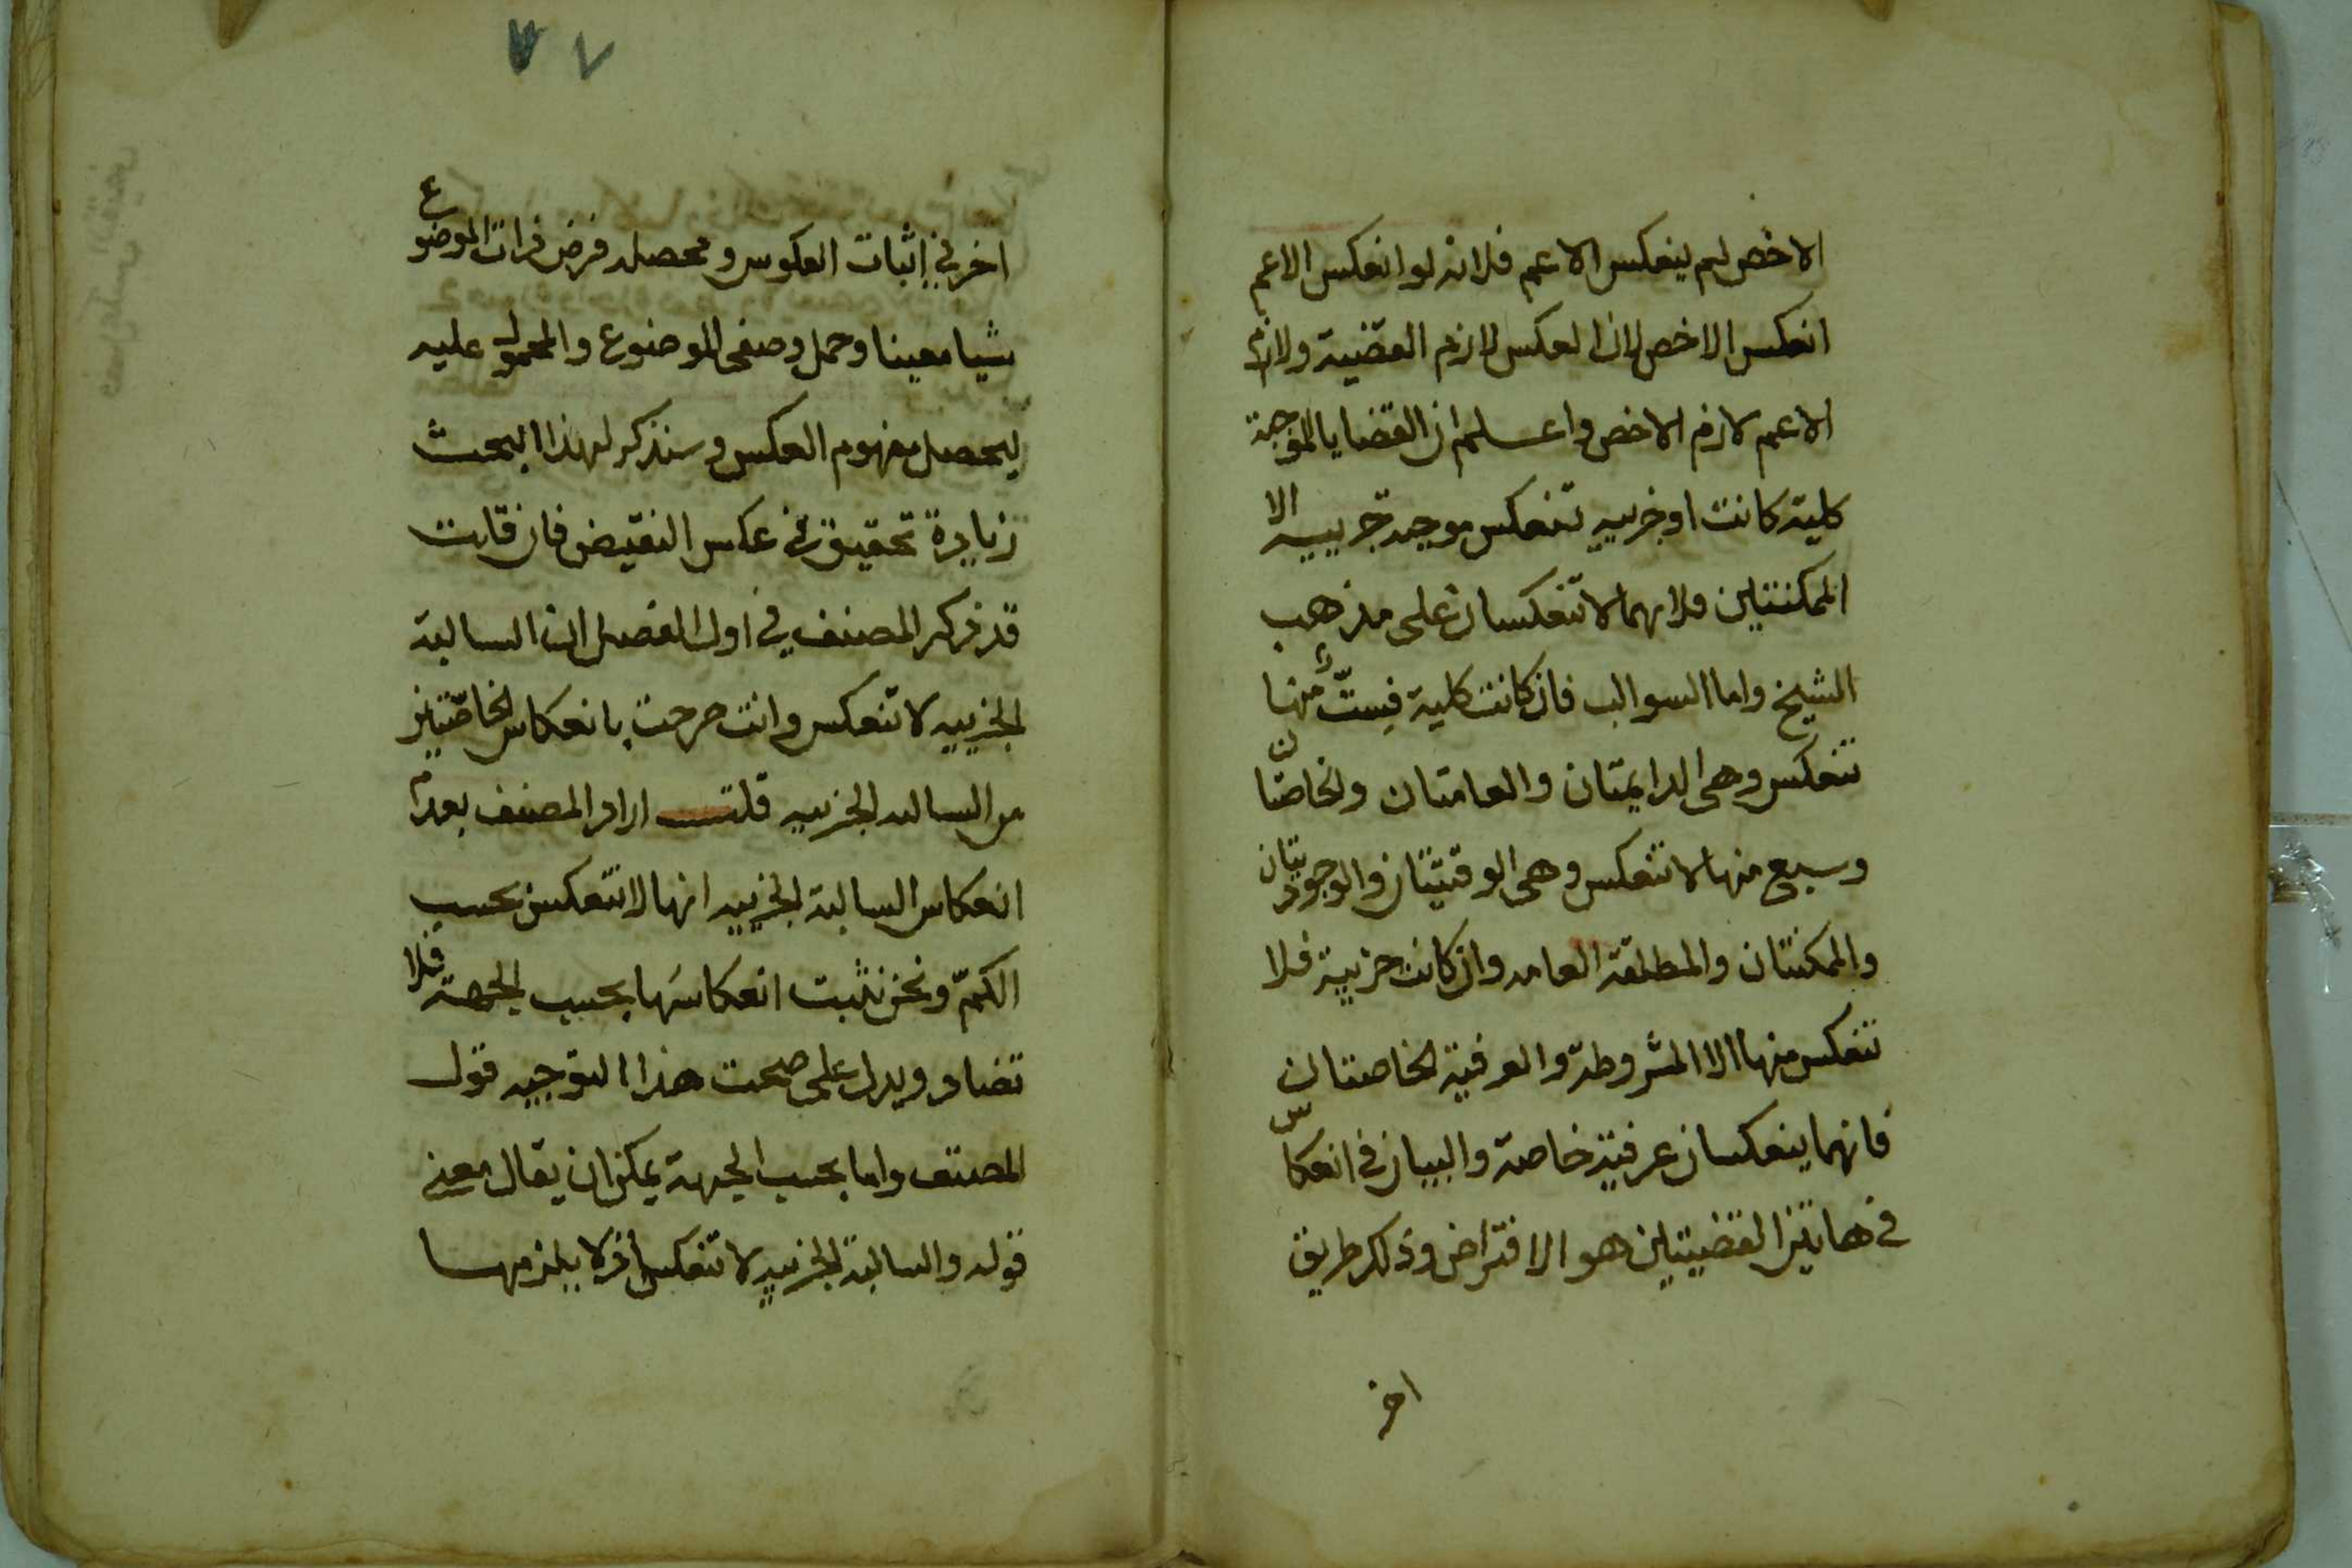 الاخص لم ينعكس الاعم فلانه لو انعكس الاعم
انعكس الاخص لان العكس لازم القضية ولازم
الاعم لازم الاخص واعلم ان القضايا الموجبة
كلية كانت او جزييه تنعكس موجبه جزييه الا
الممكنتين فلانهما لا تنعكسان على مذهب
الشيخ واما السوالب فان كانت كلية فستّ منها
تنعكس وهى الدايمتان والعامتان والخاصتان
وسبع منها لا تنعكس وهى الوقتيتان والوجوديتان
والممكنتان والمطلقة العامه وان كانت جزيية فلا
تنعكس منها الا المشروطة والعرفية الخاصتان
فانهما ينعكسان عرفية خاصة والبيان في انعكاس
في هاتين القضيتين هو الافتراض وذلك طريق
اخر
٧٧
اخر في اثبات العكوس ومحصله فرض ذات الموضوع
شيا معينا وحمل وصفى الموضوع والمحمول عليه
ليحصل مفهوم العكس وسنذكر لهذا البحث
زيادة تحقيق في عكس النقيض فان قلت
قد ذكر المصنف في اول الفصل ان السالبة
الجزييه لا تنعكس وانت صرحت بانعكاس الخاصتين
من السالبه الجزييه قلت اراد المصنف بعدم
انعكاس السالبة الجزييه انها لا تنعكس بحسب
الكمّ ونحن نثبت انعكاسها بحسب الجهة فلا
تضاد ويدل على صحت هذا التوجيه قول
المصنف واما بحسب الجهة يمكن ان يقال معنى
قوله والسالبة الجزييه لا تنعكس اذ لا يلزمها